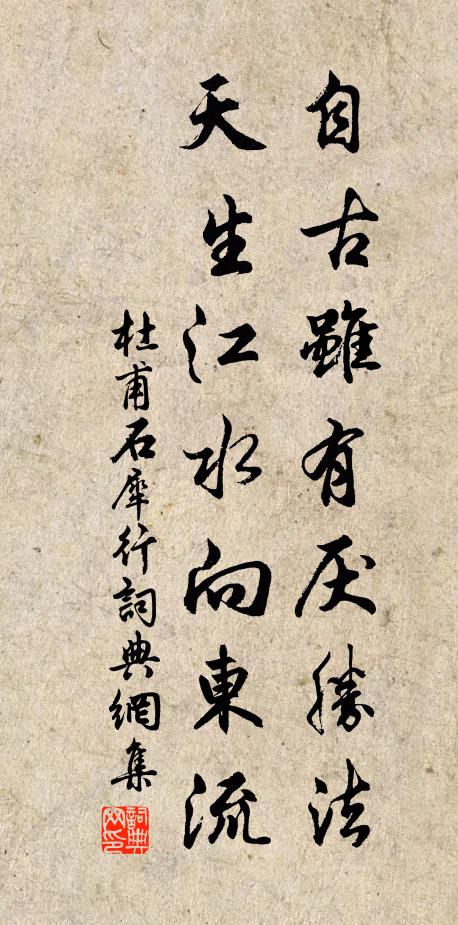 自古雖有厌勝法
天生江水向東流
杜甫石犀行詞典網集
詞典网印